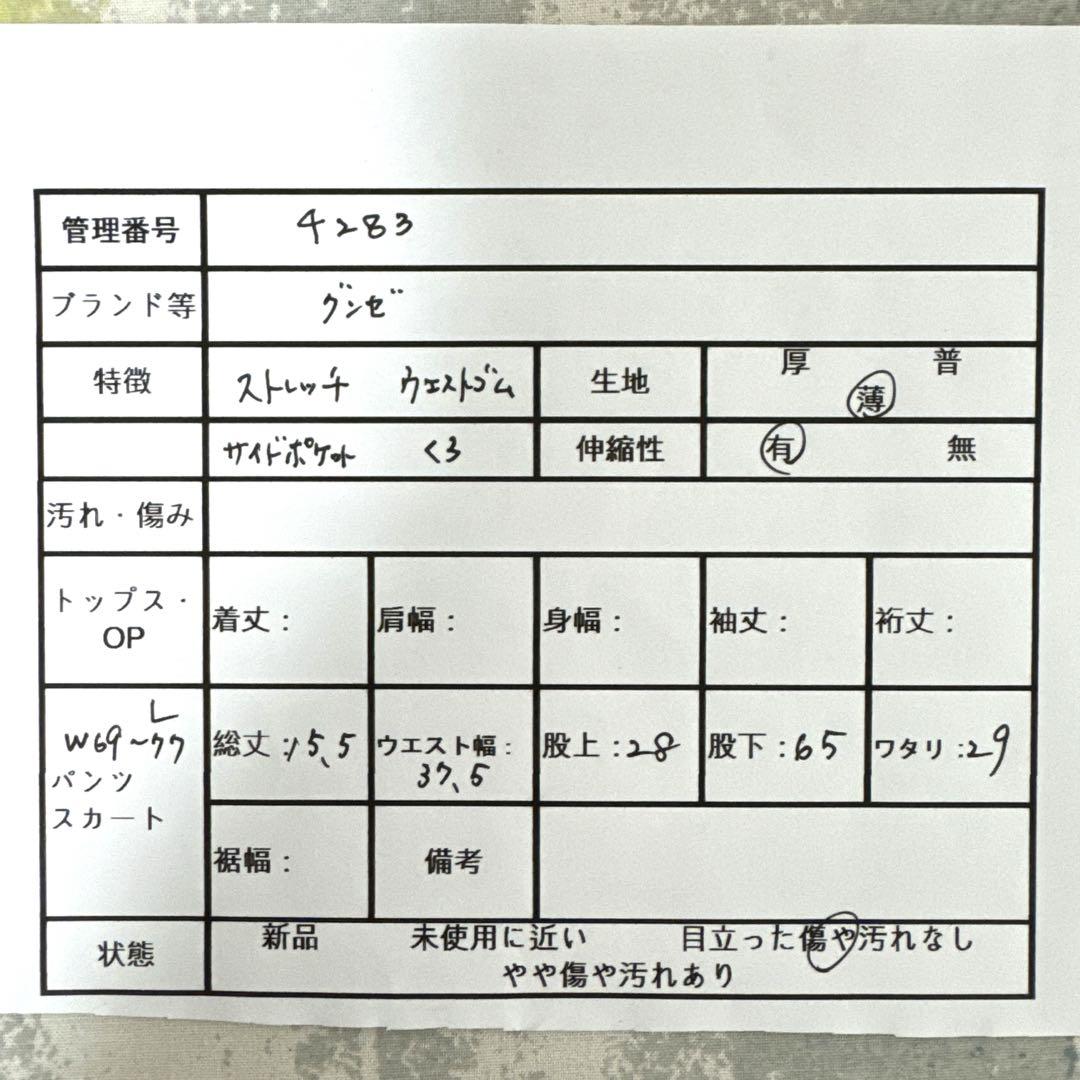 管理番号 4283
ブランド等 グンゼ
特徴 ストレッチ ウエストゴム 生地 厚 普 薄
サイドポケット くろ 伸縮性 有 無
汚れ・傷み
トップス・OP 着丈: 肩幅: 身幅: 袖丈: 裄丈:
L
W69~77
パンツ
スカート
総丈: 5,5 ウエスト幅: 37,5 股上:28 股下:65 ワタリ:29
裾幅: 備考
状態 新品 未使用に近い 目立った傷や汚れなし
やや傷や汚れあり